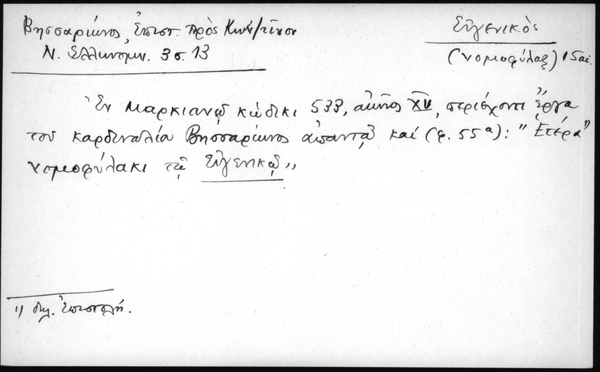 Βησσαρίωνος, Ἐπιστ. πρὸς Κων/τῖνον
Ν. Ἑλληνομν. 3 σ. 13
Εὐγενικὸς
(νομοφύλαξ) 15 αἰ.
Ἐν Μαρκιανῷ κώδικι 533, αἰῶνος XV, περιέχοντι ἔργα
τοῦ καρδιναλίου Βησσαρίωνος ἀπαντᾷ καὶ (φ. 55α): "Ἑτέρα¹⁾
νομοφύλακι τῷ Εὐγενικῷ"
1) δηλ. Ἐπιστολή.